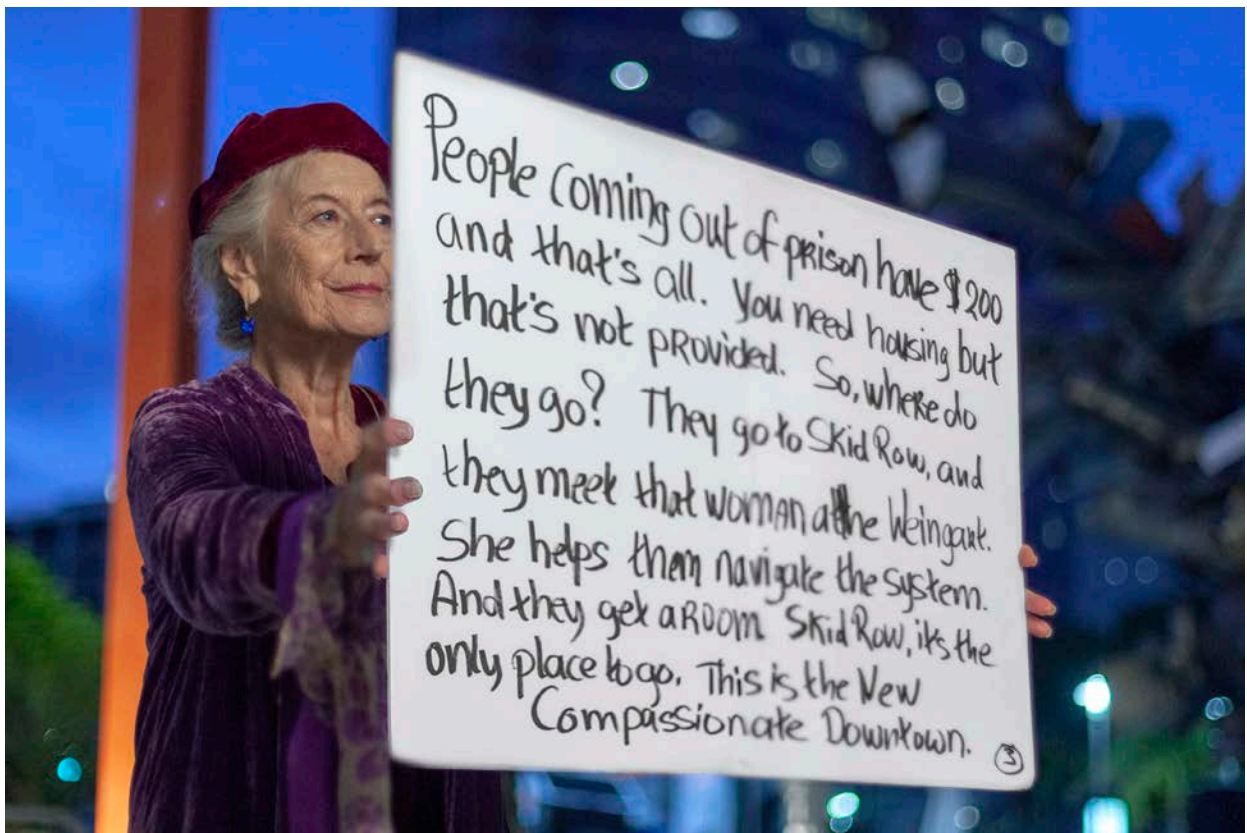 People coming out of prison have $200
and that's all. You need housing but
that's not provided. So, where do
they go? They go to Skid Row, and
they meet that woman at the Weingart.
She helps them navigate the system.
And they get a room Skid Row, it's the
only place to go. This is the New
Compassionate Downtown.
3